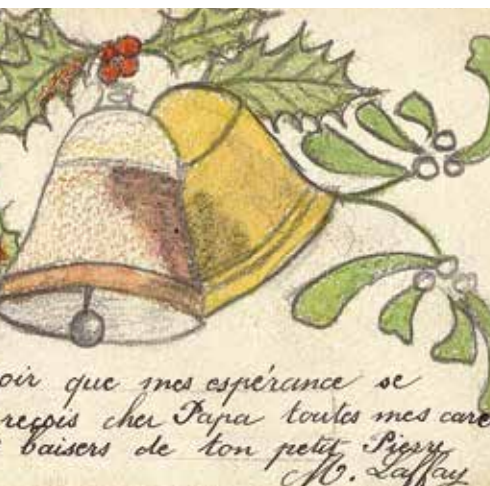 oir que mes espérance se
reçois cher Papa toutes mes care
baisers de ton petit Pierre
M. Laffay